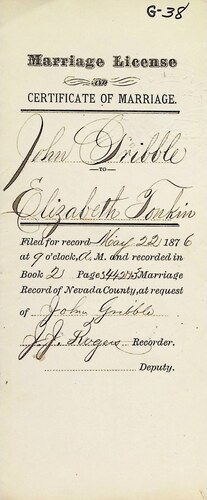 G-38
Marriage License
AND
CERTIFICATE OF MARRIAGE.
John Gribble
TO
Elizabeth Tonkin
Filed for record May 22 1876
at 9 o'clock, A. M. and recorded in
Book 2 Page Marriage
Record of Nevada County, at request
of John Gribble
J. J. Rogers Recorder.
Deputy.